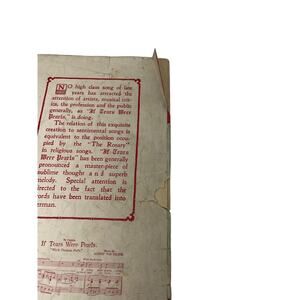 NO high class song of late
years has attracted the
attention of artists, musical crit-
ics, the profession and the public
generally, as "If Tears Were
Pearls," is doing.
The relation of this exquisite
creation to sentimental songs is
equivalent to the position occu-
pied by the "The Rosary"
in religious songs. "If Tears
Were Pearls" has been generally
pronounced a master-piece of
sublime thought and superb
melody. Special attention is
directed to the fact that the
words have been translated into
erman.
If Tears Were Pearls.